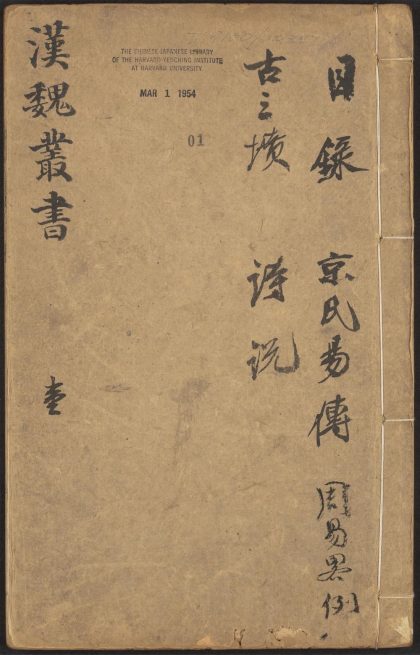 目錄 京氏易傳 周易畧例
古三墳 詩說
THE CHINESE-JAPANESE LIBRARY
OF THE HARVARD-YENCHING INSTITUTE
AT HARVARD UNIVERSITY
MAR 1 1954
01
漢魏叢書 壹